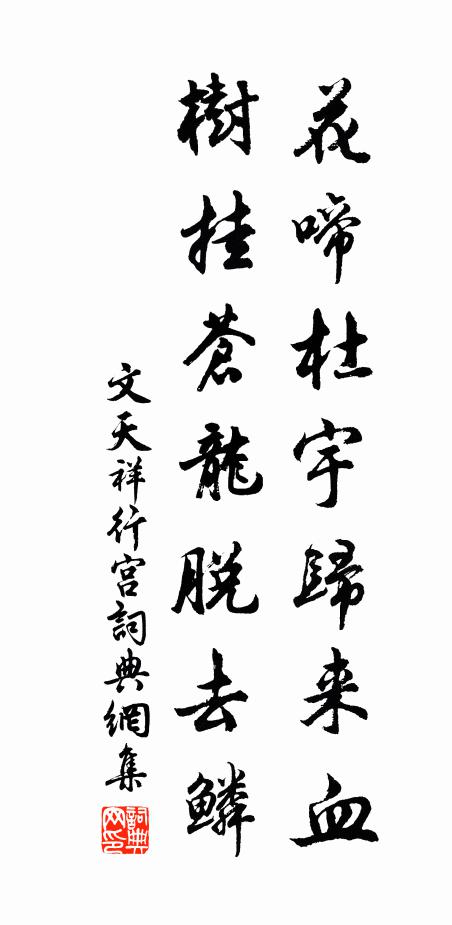 花啼杜宇歸来血
樹挂蒼龍脱去鱗
文天祥行宫詞典網集
詞典网印